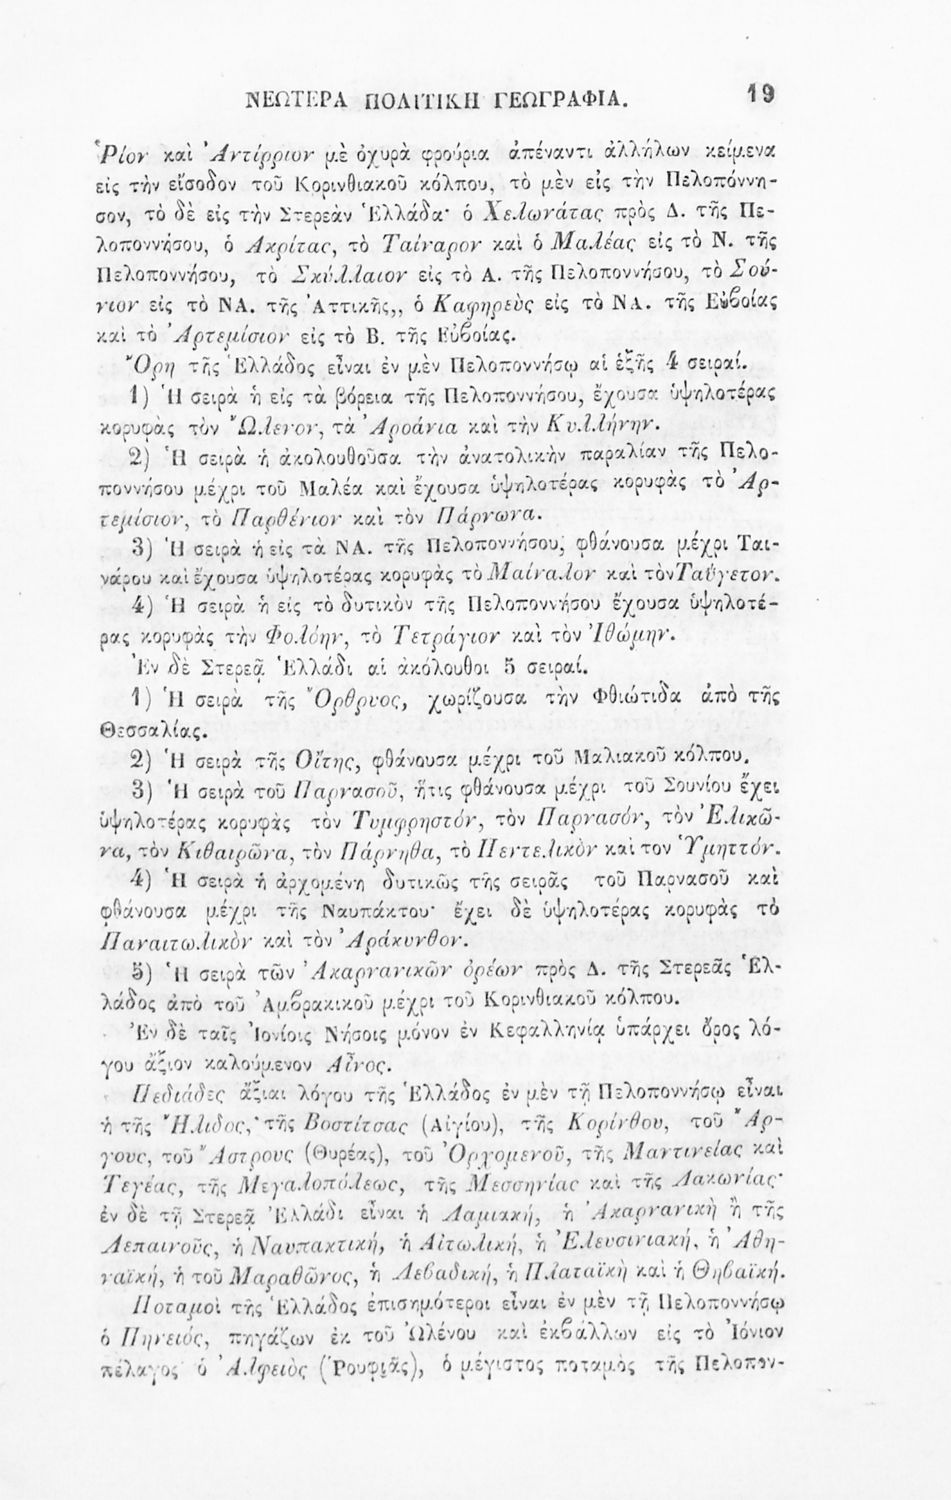 ΝΕΩΤΕΡΑ ΠΟΛΙΤΙΚΗ ΓΕΩΓΡΑΦΙΑ. 19
Ῥίον καὶ Ἀντίρριον μὲ ὀχυρὰ φρούρια ἀπέναντι ἀλλήλων κείμενα
εἰς τὴν εἴσοδον τοῦ Κορινθιακοῦ κόλπου, τὸ μὲν εἰς τὴν Πελοπόννη-
σον, τὸ δὲ εἰς τὴν Στερεὰν Ἑλλάδα· ὁ Χελωνάτας πρὸς Δ. τῆς Πε-
λοποννήσου, ὁ Ἀκρίτας, τὸ Ταίναρον καὶ ὁ Μαλέας εἰς τὸ Ν. τῆς
Πελοποννήσου, τὸ Σκύλλαιον εἰς τὸ Α. τῆς Πελοποννήσου, τὸ Σού-
νιον εἰς τὸ ΝΑ. τῆς Ἀττικῆς,, ὁ Καφηρεὺς εἰς τὸ ΝΑ. τῆς Εὐβοίας
καὶ τὸ Ἀρτεμίσιον εἰς τὸ Β. τῆς Εὐβοίας.
Ὄρη τῆς Ἑλλάδος εἶναι ἐν μὲν Πελοποννήσῳ αἱ ἑξῆς 4 σειραί.
1) Ἡ σειρὰ ἡ εἰς τὰ βόρεια τῆς Πελοποννήσου, ἔχουσα ὑψηλοτέρας
κορυφὰς τὸν Ὤλενον, τὰ Ἀροάνια καὶ τὴν Κυλλήνην.
2) Ἡ σειρὰ ἡ ἀκολουθοῦσα τὴν ἀνατολικὴν παραλίαν τῆς Πελο-
ποννήσου μέχρι τοῦ Μαλέα καὶ ἔχουσα ὑψηλοτέρας κορυφὰς τὸ Ἀρ-
τεμίσιον, τὸ Παρθένιον καὶ τὸν Πάρνωνα.
3) Ἡ σειρὰ ἡ εἰς τὰ ΝΑ. τῆς Πελοποννήσου, φθάνουσα μέχρι Ται-
νάρου καὶ ἔχουσα ὑψηλοτέρας κορυφὰς τὸ Μαίναλον καὶ τὸν Ταΰγετον.
4) Ἡ σειρὰ ἡ εἰς τὸ δυτικὸν τῆς Πελοποννήσου ἔχουσα ὑψηλοτέ-
ρας κορυφὰς τὴν Φολόην, τὸ Τετράγιον καὶ τὸν Ἰθώμην.
Ἐν δὲ Στερεᾷ Ἑλλάδι αἱ ἀκόλουθοι 5 σειραί.
1) Ἡ σειρὰ τῆς Ὄρθρυος, χωρίζουσα τὴν Φθιώτιδα ἀπὸ τῆς
Θεσσαλίας.
2) Ἡ σειρὰ τῆς Οἴτης, φθάνουσα μέχρι τοῦ Μαλιακοῦ κόλπου.
3) Ἡ σειρὰ τοῦ Παρνασοῦ, ἥτις φθάνουσα μέχρι τοῦ Σουνίου ἔχει
ὑψηλοτέρας κορυφὰς τὸν Τυμφρηστόν, τὸν Παρνασόν, τὸν Ἑλικῶ-
να, τὸν Κιθαιρῶνα, τὸν Πάρνηθα, τὸ Πεντελικὸν καὶ τον Ὑμηττόν.
4) Ἡ σειρὰ ἡ ἀρχομένη δυτικῶς τῆς σειρᾶς τοῦ Παρνασοῦ καὶ
φθάνουσα μέχρι τῆς Ναυπάκτου· ἔχει δὲ ὑψηλοτέρας κορυφὰς τὸ
Παναιτωλικὸν καὶ τὸν Ἀράκυνθον.
5) Ἡ σειρὰ τῶν Ἀκαρνανικῶν ὀρέων πρὸς Δ. τῆς Στερεᾶς Ἑλ-
λάδος ἀπὸ τοῦ Ἀμβρακικοῦ μέχρι τοῦ Κορινθιακοῦ κόλπου.
Ἐν δὲ ταῖς Ἰονίοις Νήσοις μόνον ἐν Κεφαλληνίᾳ ὑπάρχει ὄρος λό-
γου ἄξιον καλούμενον Αἶνος.
Πεδιάδες ἄξιαι λόγου τῆς Ἑλλάδος ἐν μὲν τῇ Πελοποννήσῳ εἶναι
ἡ τῆς Ἤλιδος, τῆς Βοστίτσας (Αἰγίου), τῆς Κορίνθου, τοῦ Ἄρ-
γους, τοῦ Ἄστρους (Θυρέας), τοῦ Ὀρχομενοῦ, τῆς Μαντινείας καὶ
Τεγέας, τῆς Μεγαλοπόλεως, τῆς Μεσσηνίας καὶ τῆς Λακωνίας·
ἐν δὲ τῇ Στερεᾷ Ἑλλάδι εἶναι ἡ Λαμιακή, ἡ Ἀκαρνανικὴ ἢ τῆς
Λεπαινοῦς, ἡ Ναυπακτική, ἡ Αἰτωλική, ἡ Ἐλευσινιακή, ἡ Ἀθη-
ναϊκή, ἡ τοῦ Μαραθῶνος, ἡ Λεβαδική, ἡ Πλαταϊκὴ καὶ ἡ Θηβαϊκή.
Ποταμοὶ τῆς Ἑλλάδος ἐπισημότεροι εἶναι ἐν μὲν τῇ Πελοποννήσῳ
ὁ Πηνειός, πηγάζων ἐκ τοῦ Ὠλένου καὶ ἐκβάλλων εἰς τὸ Ἰόνιον
πέλαγος ὁ Ἀλφειὸς (Ῥουφιᾶς), ὁ μέγιστος ποταμὸς τῆς Πελοπον-